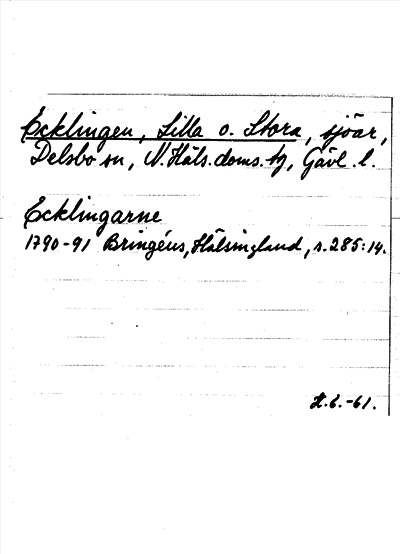 Ecklingen, Lilla o. Stora, sjöar,
Delsbo sn, N. Häls. doms. tg, Gävl. l.
Ecklingarne
1790-91 Bringéus, Hälsingland, s. 285:14.
H.E.-61.